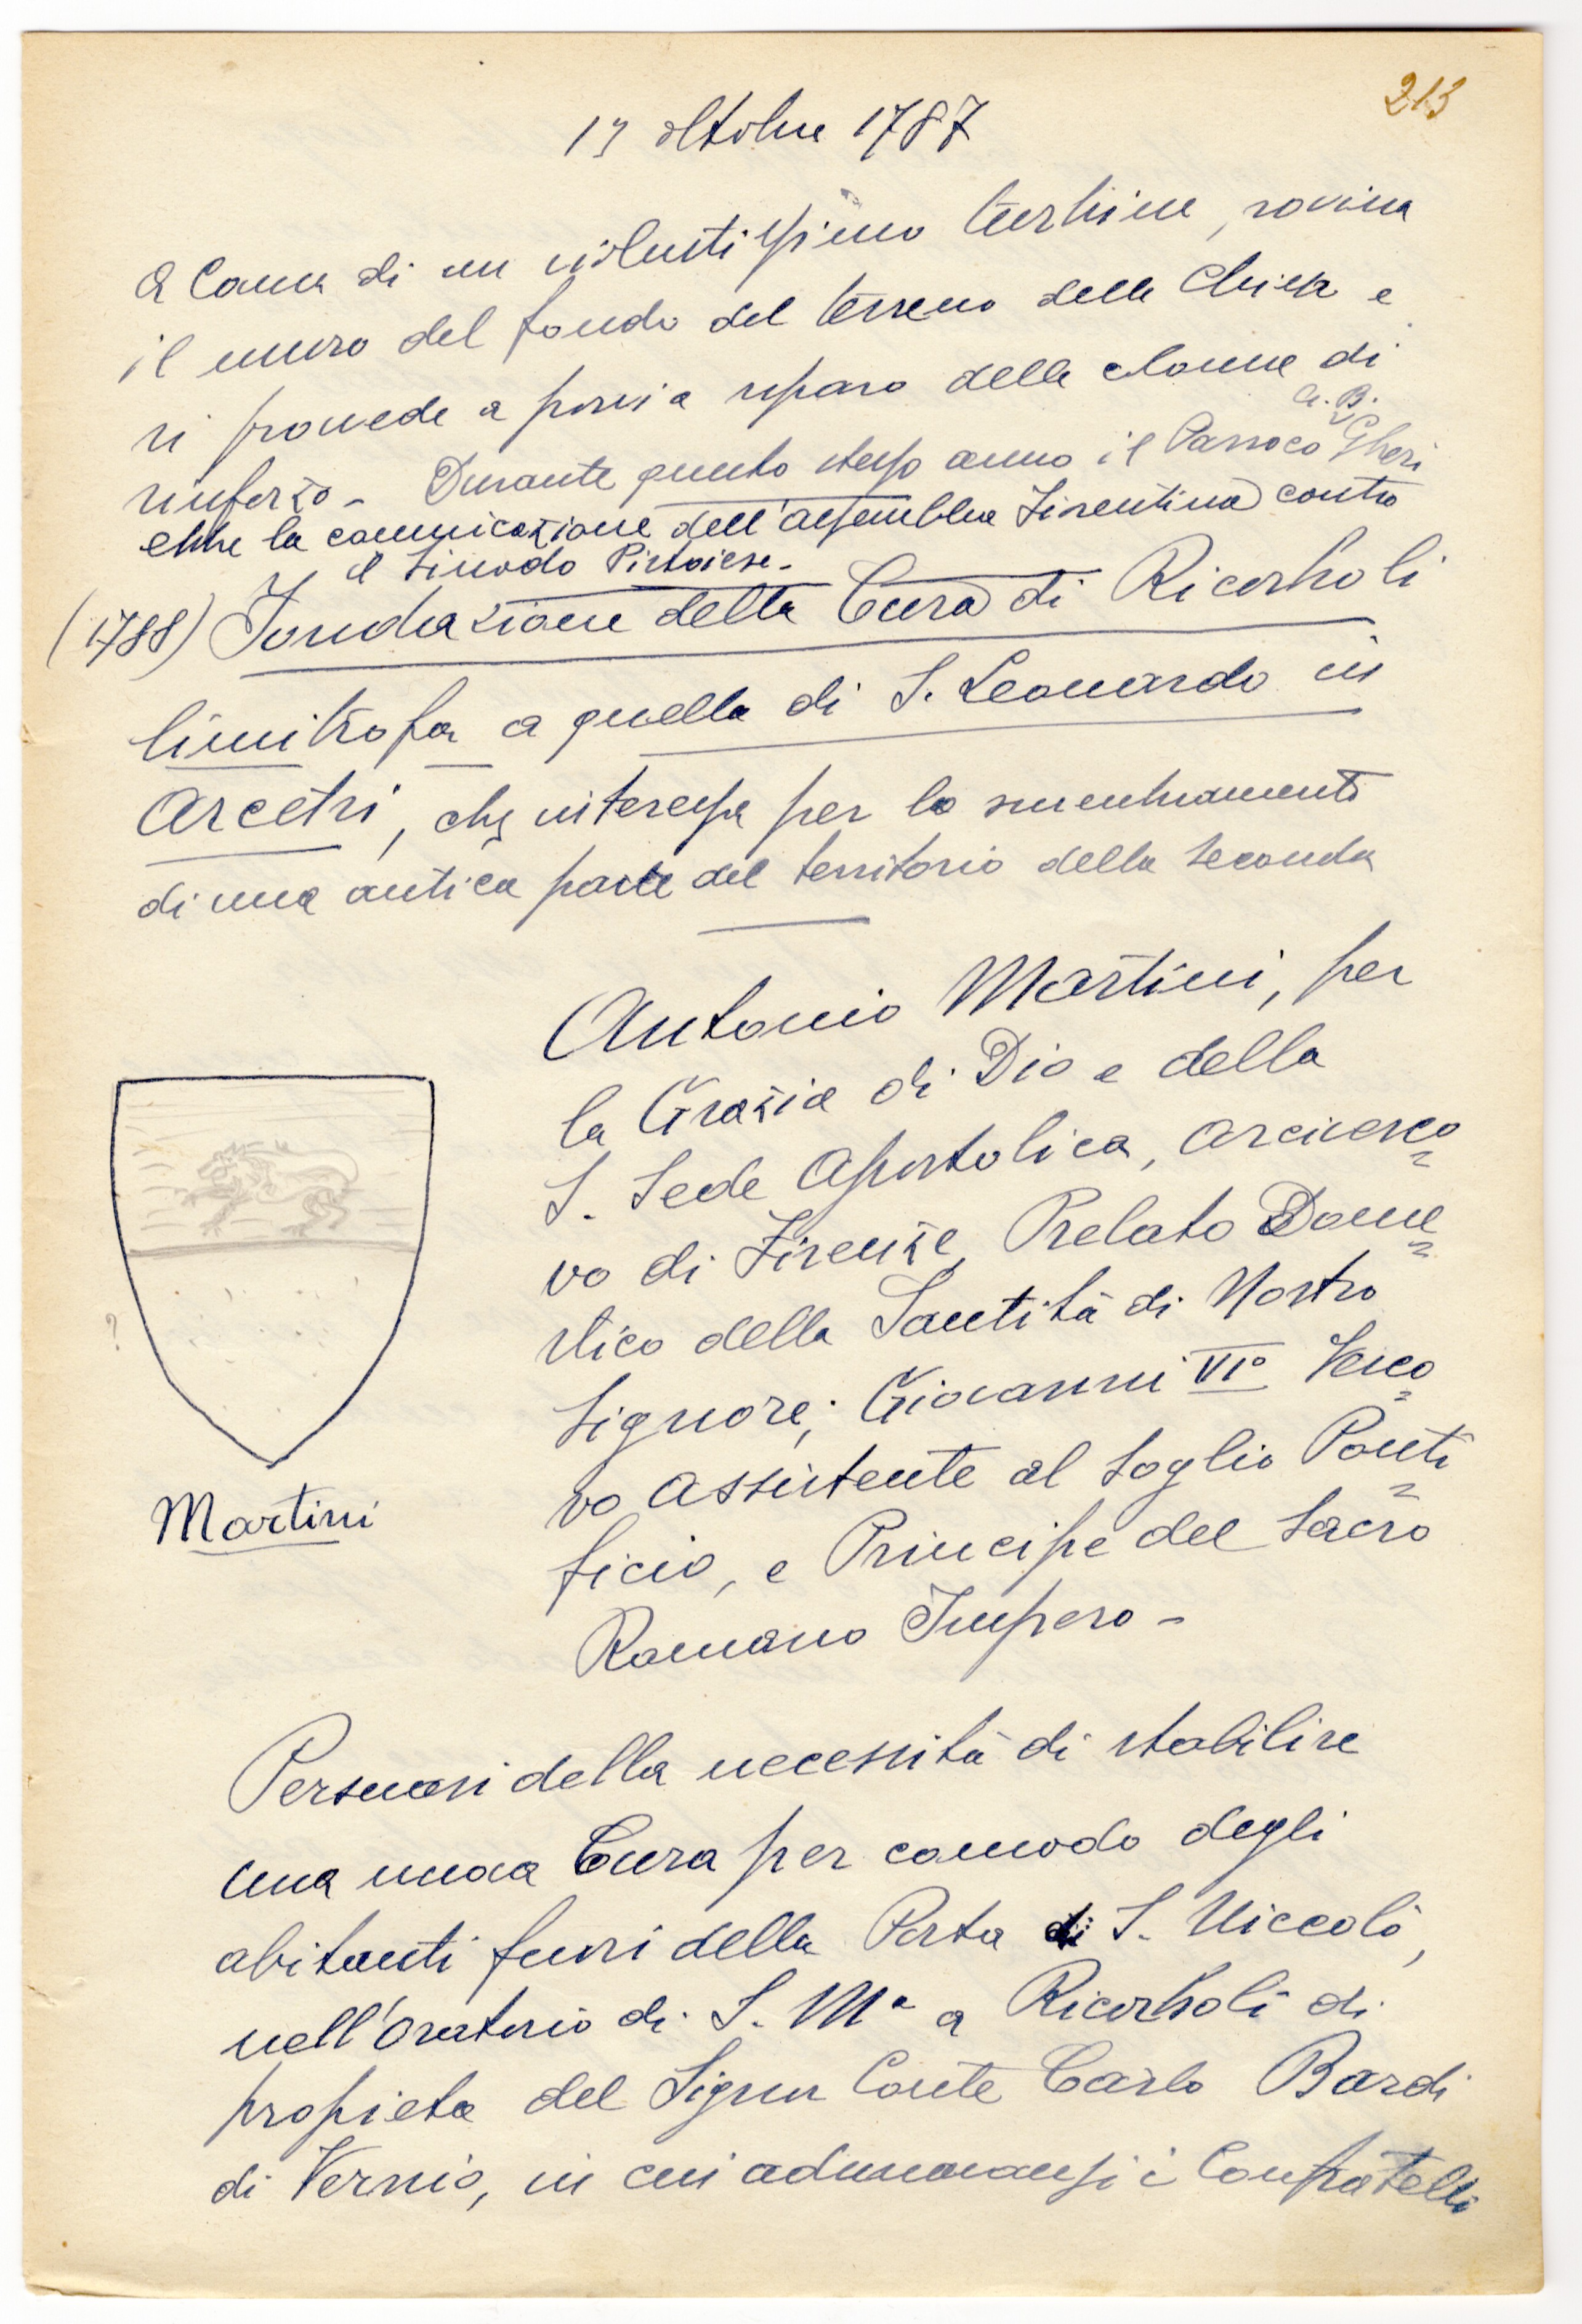 213
13 ottobre 1787
A causa di un violentissimo turbine, rovina
il muro del fondo del terreno della Chiesa e
si provvede a porvi a riparo delle colonne di
rinforzo - Durante questo stesso anno il Parroco G. B. Gheri
ebbe la comunicazione dell'assemblea Fiorentina contro
il Sinodo Pistoiese -
(1788) Fondazione della Cura di Ricorboli
limitrofa a quella di S. Leonardo in
Arcetri, che interessa per lo smembramento
di una antica parte del territorio della seconda
Antonio Martini, per
la Grazia di Dio e della
S. Sede Apostolica, Arcivesco=
vo di Firenze, Prelato Dome=
stico della Santità di Nostro
Signore; Giovanni VIº Vesco=
vo assistente al soglio Ponti=
ficio, e Principe del Sacro
Romano Impero -
Martini
?
Persuasi della necessità di stabilire
una nuova Cura per comodo degli
abitanti fuori della Porta di S. Niccolò,
nell'oratorio di S. Mª a Ricorboli di
propieta del Signor Conte Carlo Bardi
di Vernio, in cui adunavansi i Confratelli